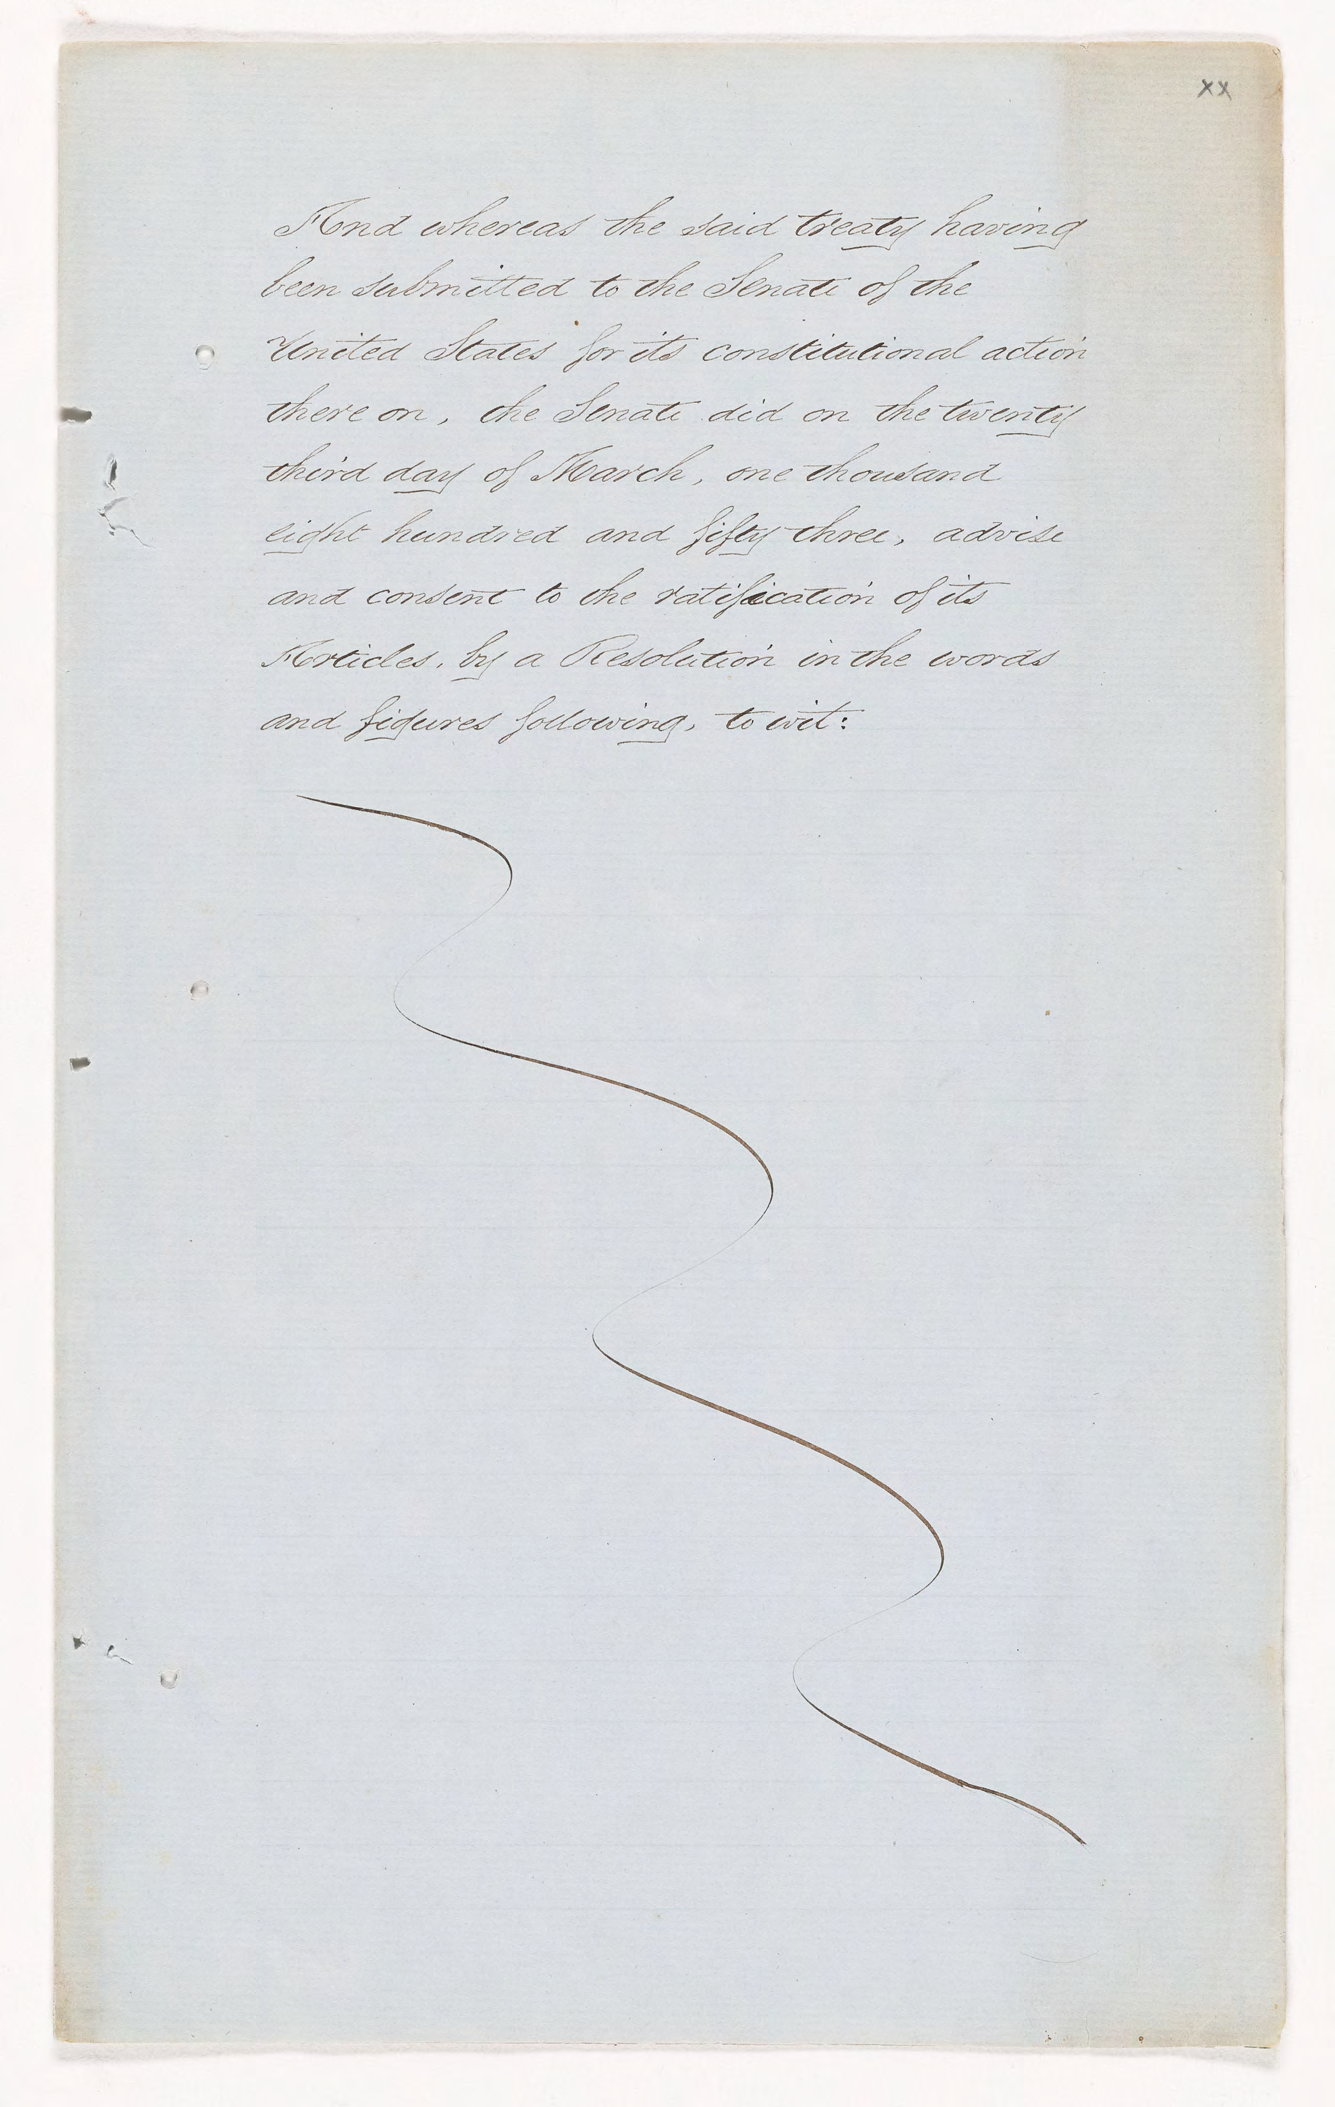 xx
And whereas the said treaty having
been submitted to the Senate of the
United States for its constitutional action
there on, the Senate did on the twenty
third day of March, one thousand
eight hundred and fifty three, advise
and consent to the ratification of its
Articles, by a Resolution in the words
and figures following, to wit: